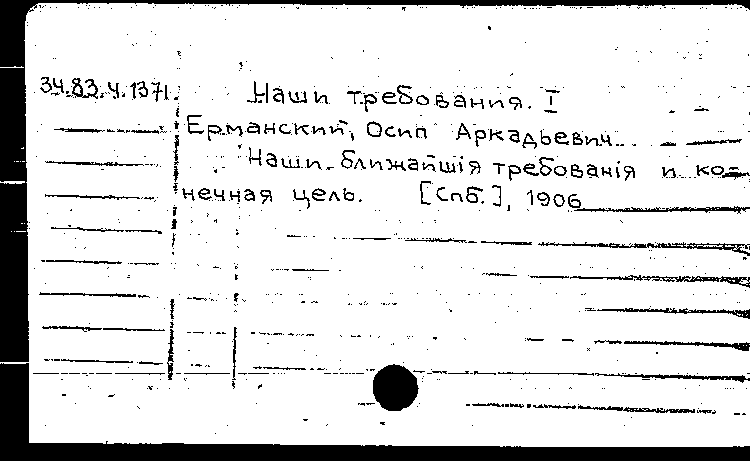 34.83.4.1371. Наши требования. I
Ерманский, Осип Аркадьевич.
Наши ближайшія требованія и ко-
нечная цель. [Спб.], 1906